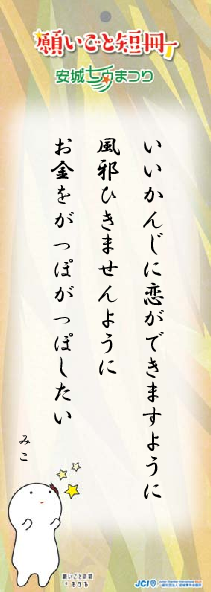 願いごと短冊
安城七夕まつり
いいかんじに恋ができますように
風邪ひきませんように
お金をがっぽがっぽしたい
みこ
願いごと短冊
JCI